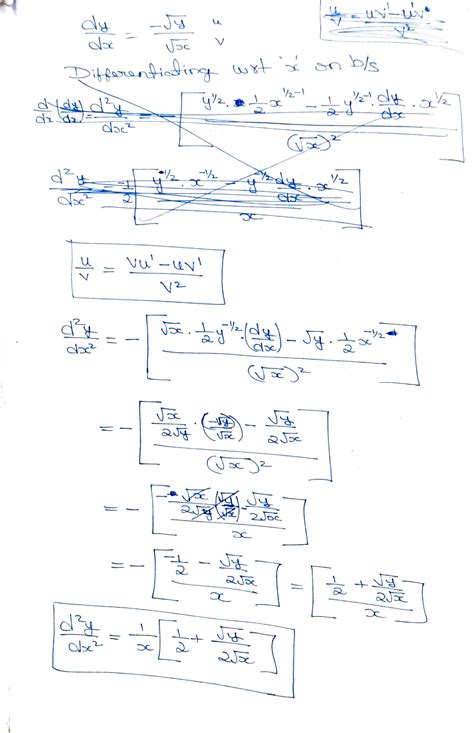 dy/dx = -√y/√x u v
u/v = uv' - u'v / v²
Differentiating wrt 'x' on b/s
d/dx(dy/dx) = d²y/dx² = - [y^1/2 · 1/2 x^1/2-1 - 1/2 y^1/2-1 · dy/dx · x^1/2 / (√x)²]
d²y/dx² = 1/2 [y^1/2 · x^-1/2 - y^-1/2 dy/dx · x^1/2 / x]
u/v = vu' - uv' / v²
d²y/dx² = - [√x · 1/2 y^-1/2 · (dy/dx) - √y · 1/2 x^-1/2 / (√x)²]
= - [√x/2√y · (-√y/√x) - √y/2√x / (√x)²]
= - [-√x/2√y (√y/√x) - √y/2√x / x]
= - [-1/2 - √y/2√x / x] = [1/2 + √y/2√x / x]
d²y/dx² = 1/x [1/2 + √y/2√x]